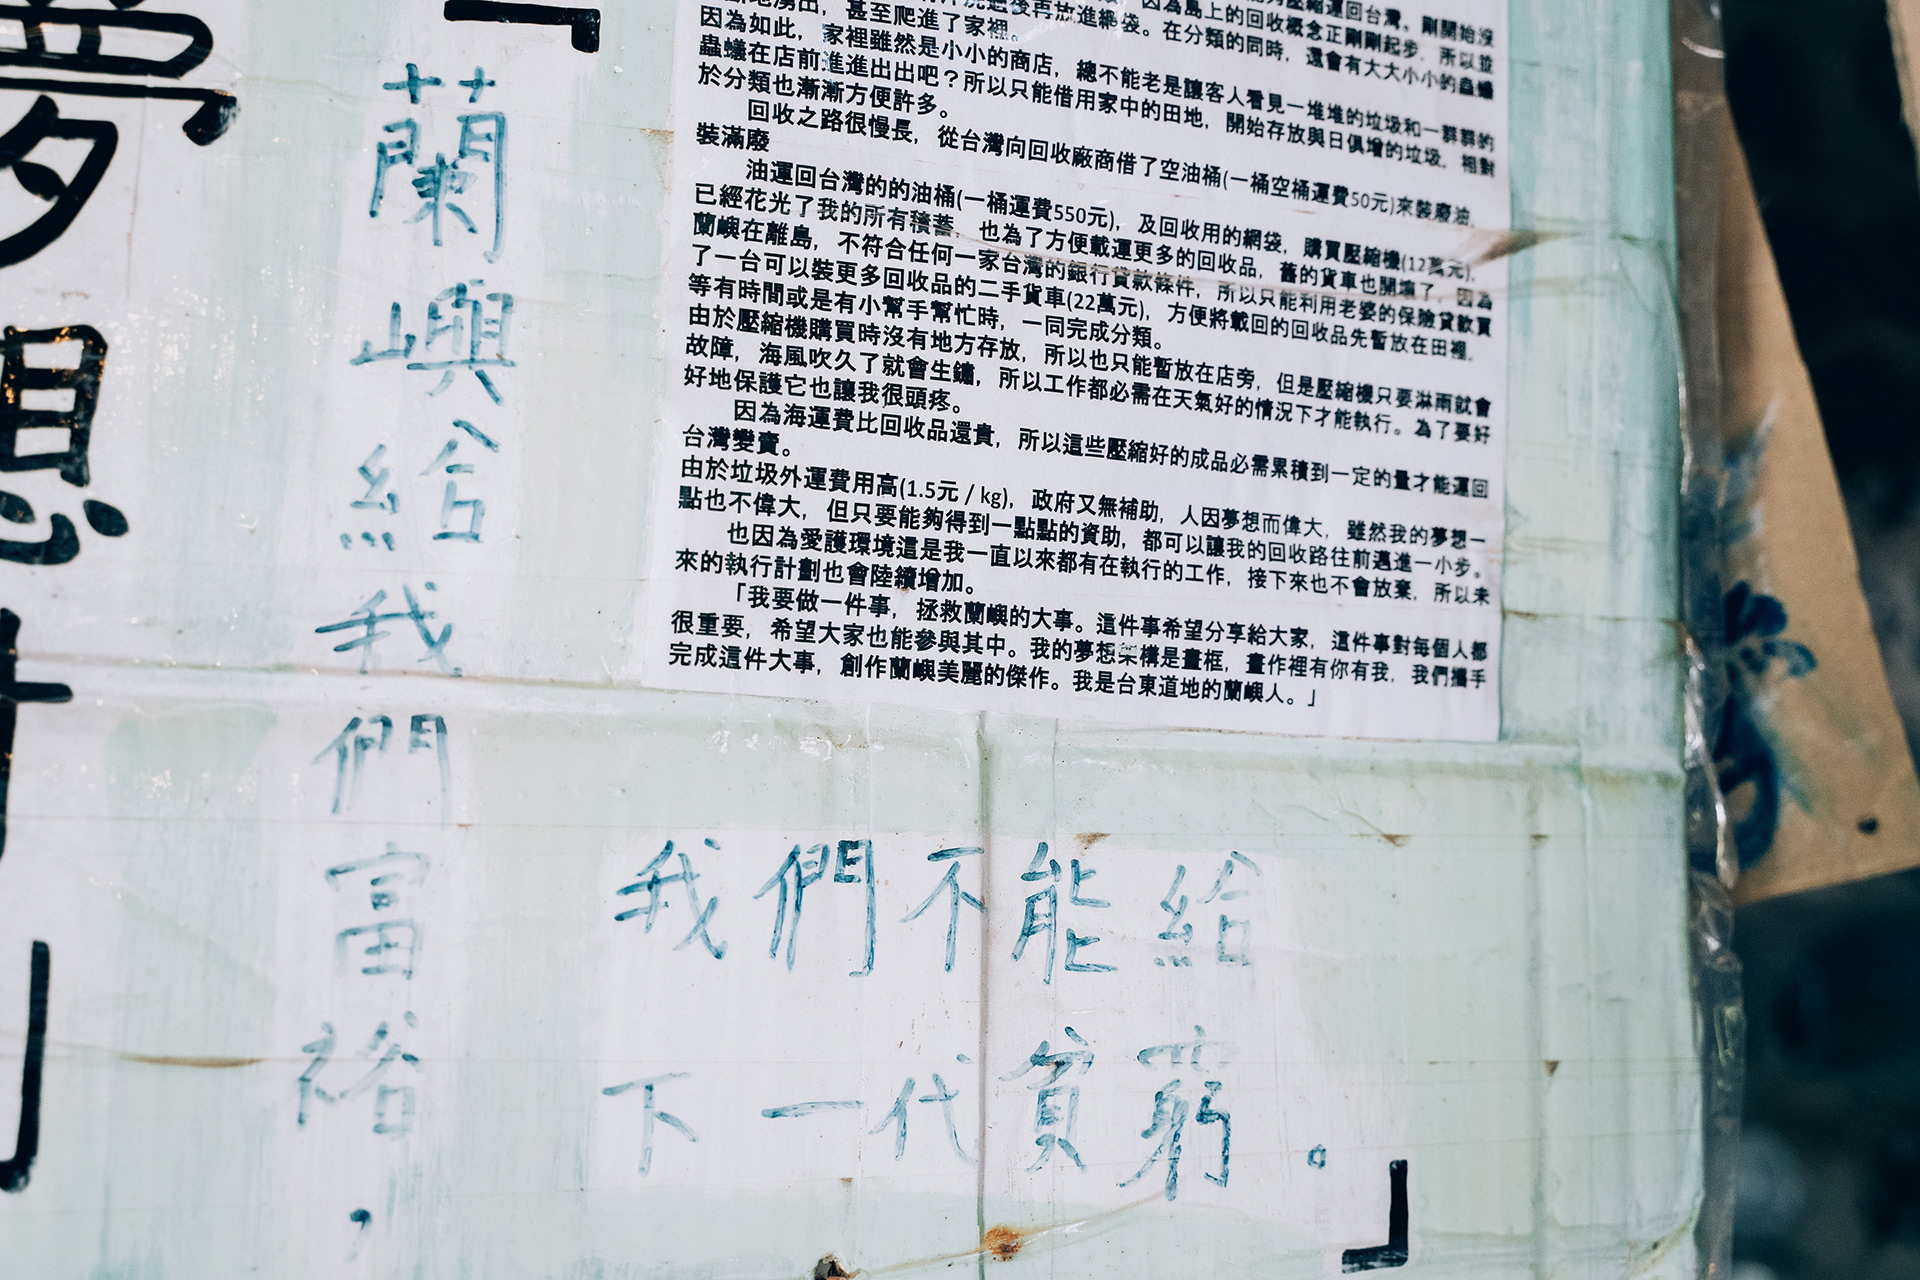 夢想
「
蘭嶼給我們富裕,
壓縮運回台灣。剛開始沒
後再放進網袋。在分類的同時,還會有大大小小的蟲蟻
湧出,甚至爬進了家裡。
因為島上的回收概念正剛剛起步,所以並
因為如此,家裡雖然是小小的商店,總不能老是讓客人看見一堆堆的垃圾和一群群的
蟲蟻在店前進進出出吧?所以只能借用家中的田地,開始存放與日俱增的垃圾,相對
於分類也漸漸方便許多。
回收之路很慢長,從台灣向回收廠商借了空油桶(一桶空桶運費50元)來裝廢油,
裝滿廢
油運回台灣的的油桶(一桶運費550元),及回收用的網袋,購買壓縮機(12萬元),
已經花光了我的所有積蓄,也為了方便載運更多的回收品,舊的貨車也開壞了,因為
蘭嶼在離島,不符合任何一家台灣的銀行貸款條件,所以只能利用老婆的保險貸款買
了一台可以裝更多回收品的二手貨車(22萬元),方便將載回的回收品先暫放在田裡,
等有時間或是有小幫手幫忙時,一同完成分類。
由於壓縮機購買時沒有地方存放,所以也只能暫放在店旁,但是壓縮機只要淋雨就會
故障,海風吹久了就會生鏽,所以工作都必需在天氣好的情況下才能執行。為了要好
好地保護它也讓我很頭疼。
因為海運費比回收品還貴,所以這些壓縮好的成品必需累積到一定的量才能運回
台灣變賣。
由於垃圾外運費用高(1.5元 / kg),政府又無補助,人因夢想而偉大,雖然我的夢想一
點也不偉大,但只要能夠得到一點點的資助,都可以讓我的回收路往前邁進一小步。
也因為愛護環境這是我一直以來都有在執行的工作,接下來也不會放棄,所以未
來的執行計劃也會陸續增加。
「我要做一件事,拯救蘭嶼的大事。這件事希望分享給大家,這件事對每個人都
很重要,希望大家也能參與其中。我的夢想架構是畫框,畫作裡有你有我,我們攜手
完成這件大事,創作蘭嶼美麗的傑作。我是台東道地的蘭嶼人。」
我們不能給
下一代貧窮。
」